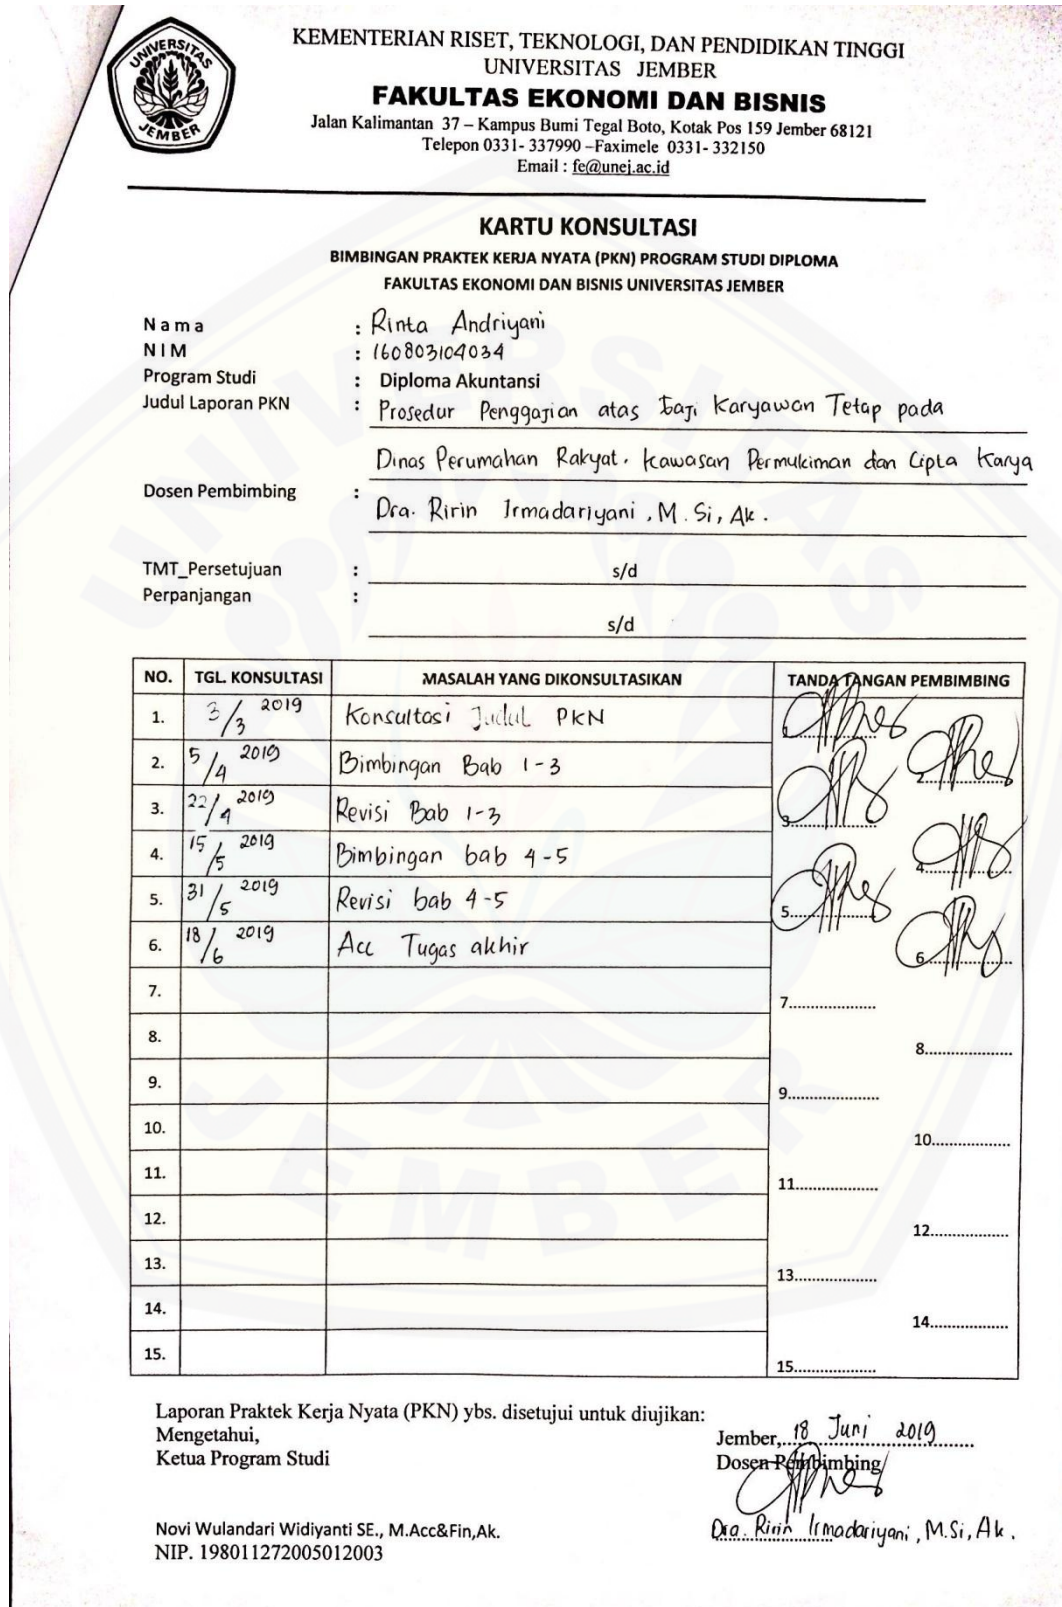 UNIVERSITAS
JEMBER
KEMENTERIAN RISET, TEKNOLOGI, DAN PENDIDIKAN TINGGI
UNIVERSITAS JEMBER
FAKULTAS EKONOMI DAN BISNIS
Jalan Kalimantan 37 – Kampus Bumi Tegal Boto, Kotak Pos 159 Jember 68121
Telepon 0331- 337990 –Faximele 0331- 332150
Email : fe@unej.ac.id
KARTU KONSULTASI
BIMBINGAN PRAKTEK KERJA NYATA (PKN) PROGRAM STUDI DIPLOMA
FAKULTAS EKONOMI DAN BISNIS UNIVERSITAS JEMBER
N a m a : Rinta Andriyani
N I M : 160803104034
Program Studi : Diploma Akuntansi
Judul Laporan PKN : Prosedur Penggajian atas Gaji Karyawan Tetap pada
Dinas Perumahan Rakyat. Kawasan Permukiman dan Cipta Karya
Dosen Pembimbing : Dra. Ririn Irmadariyani, M. Si, Ak.
TMT_Persetujuan : s/d
Perpanjangan :
s/d
NO. TGL. KONSULTASI MASALAH YANG DIKONSULTASIKAN TANDA TANGAN PEMBIMBING
1. 3/3 2019 Konsultasi Judul PKN 1
2. 5/4 2019 Bimbingan Bab 1-3 2
3. 22/4 2019 Revisi Bab 1-3 3
4. 15/5 2019 Bimbingan bab 4-5 4
5. 31/5 2019 Revisi bab 4-5 5
6. 18/6 2019 Acc Tugas akhir 6
7. 7
8. 8
9. 9
10. 10
11. 11
12. 12
13. 13
14. 14
15. 15
Laporan Praktek Kerja Nyata (PKN) ybs. disetujui untuk diujikan:
Mengetahui,
Ketua Program Studi
Jember, 18 Juni 2019
Dosen Pembimbing
Novi Wulandari Widiyanti SE., M.Acc&Fin,Ak.
NIP. 198011272005012003
Dra. Ririn Irmadariyani, M.Si, Ak.
UNIVERSITAS
JEMBER